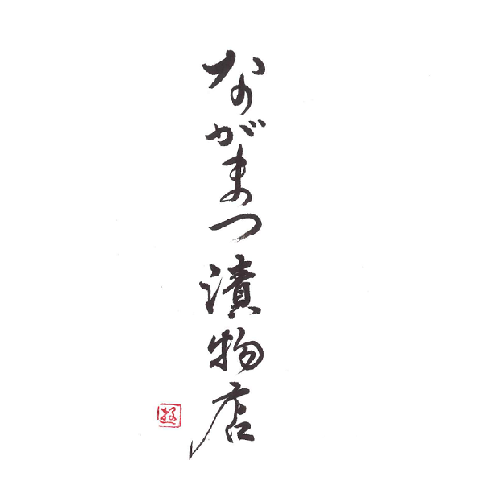 ながまつ漬物店